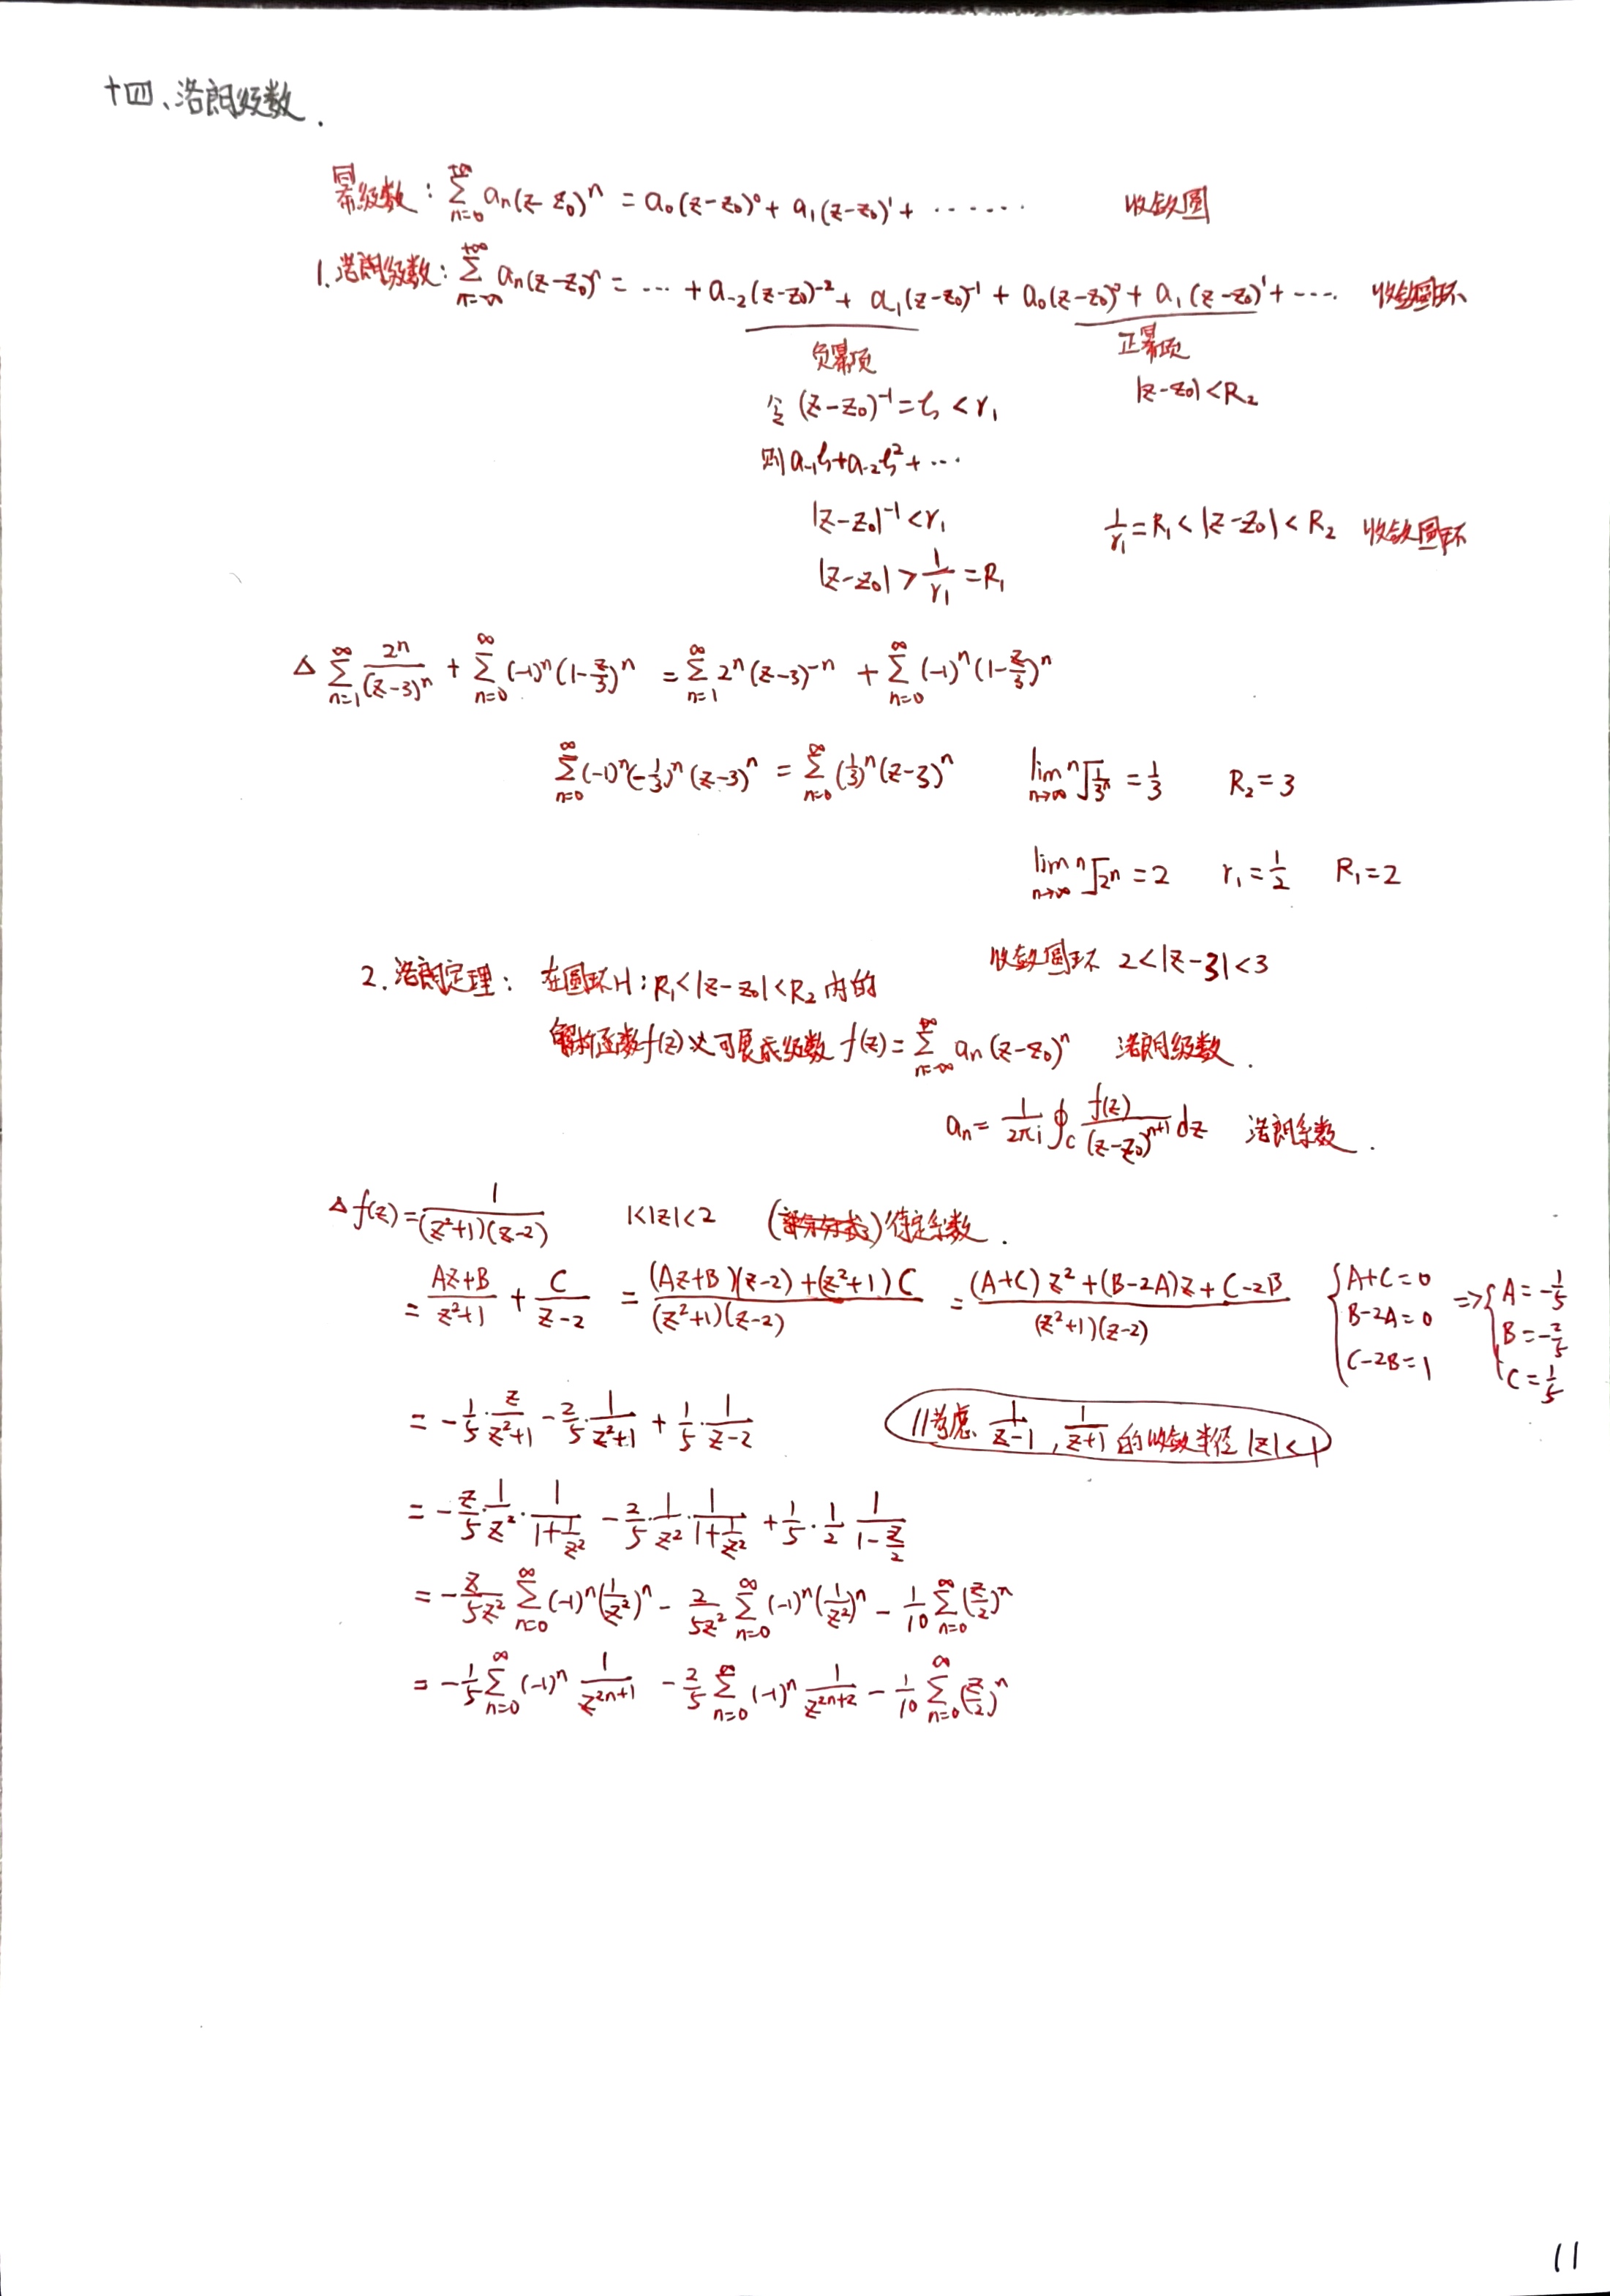 十四、洛朗级数.
幂级数: ∑_{n=0}^{+∞} a_n(z-z_0)^n = a_0(z-z_0)^0 + a_1(z-z_0)^1 + ······ 收敛圆
1. 洛朗级数: ∑_{n=-∞}^{+∞} a_n(z-z_0)^n = ··· + a_{-2}(z-z_0)^{-2} + a_1(z-z_0)^{-1} + a_0(z-z_0)^0 + a_1(z-z_0)^1 + ···· 收敛圆环
负幂项 正幂项
令 (z-z_0)^{-1} = ζ < r_1 |z-z_0| < R_2
则 a_{-1}ζ + a_{-2}ζ^2 + ···
|z-z_0|^{-1} < r_1 1/r_1 = R_1 < |z-z_0| < R_2 收敛圆环
|z-z_0| > 1/r_1 = R_1
Δ ∑_{n=1}^{∞} 2^n/(z-3)^n + ∑_{n=0}^{∞} (-1)^n(1-z/3)^n = ∑_{n=1}^{∞} 2^n(z-3)^{-n} + ∑_{n=0}^{∞} (-1)^n(1-z/3)^n
∑_{n=0}^{∞} (-1)^n(-1/3)^n(z-3)^n = ∑_{n=0}^{∞} (1/3)^n(z-3)^n lim_{n→∞} ⁿ√(1/3^n) = 1/3 R_2 = 3
lim_{n→∞} ⁿ√(2^n) = 2 r_1 = 1/2 R_1 = 2
收敛圆环 2<|z-3|<3
2. 洛朗定理: 在圆环H: R_1<|z-z_0|<R_2 内的
解析函数f(z)必可展成级数 f(z) = ∑_{n=-∞}^{+∞} a_n(z-z_0)^n 洛朗级数.
a_n = 1/(2πi) ∮_C f(z)/(z-z_0)^{n+1} dz 洛朗系数.
Δ f(z) = 1/((z^2+1)(z-2)) 1<|z|<2 () 待定系数.
= (Az+B)/(z^2+1) + C/(z-2) = ((Az+B)(z-2)+(z^2+1)C)/((z^2+1)(z-2)) = ((A+C)z^2+(B-2A)z+C-2B)/((z^2+1)(z-2)) { A+C=0 B-2A=0 C-2B=1 => { A=-1/5 B=-2/5 C=1/5
= -1/5·z/(z^2+1) - 2/5·1/(z^2+1) + 1/5·1/(z-2) //考虑 1/(z-1), 1/(z+1) 的收敛半径 |z|<1
= -z/5·1/z^2·1/(1+1/z^2) - 2/5·1/z^2·1/(1+1/z^2) + 1/5·1/2 1/(1-z/2)
= -z/(5z^2) ∑_{n=0}^{∞} (-1)^n(1/z^2)^n - 2/(5z^2) ∑_{n=0}^{∞} (-1)^n(1/z^2)^n - 1/10 ∑_{n=0}^{∞} (z/2)^n
= -1/5 ∑_{n=0}^{∞} (-1)^n 1/z^{2n+1} - 2/5 ∑_{n=0}^{∞} (-1)^n 1/z^{2n+2} - 1/10 ∑_{n=0}^{∞} (z/2)^n
11